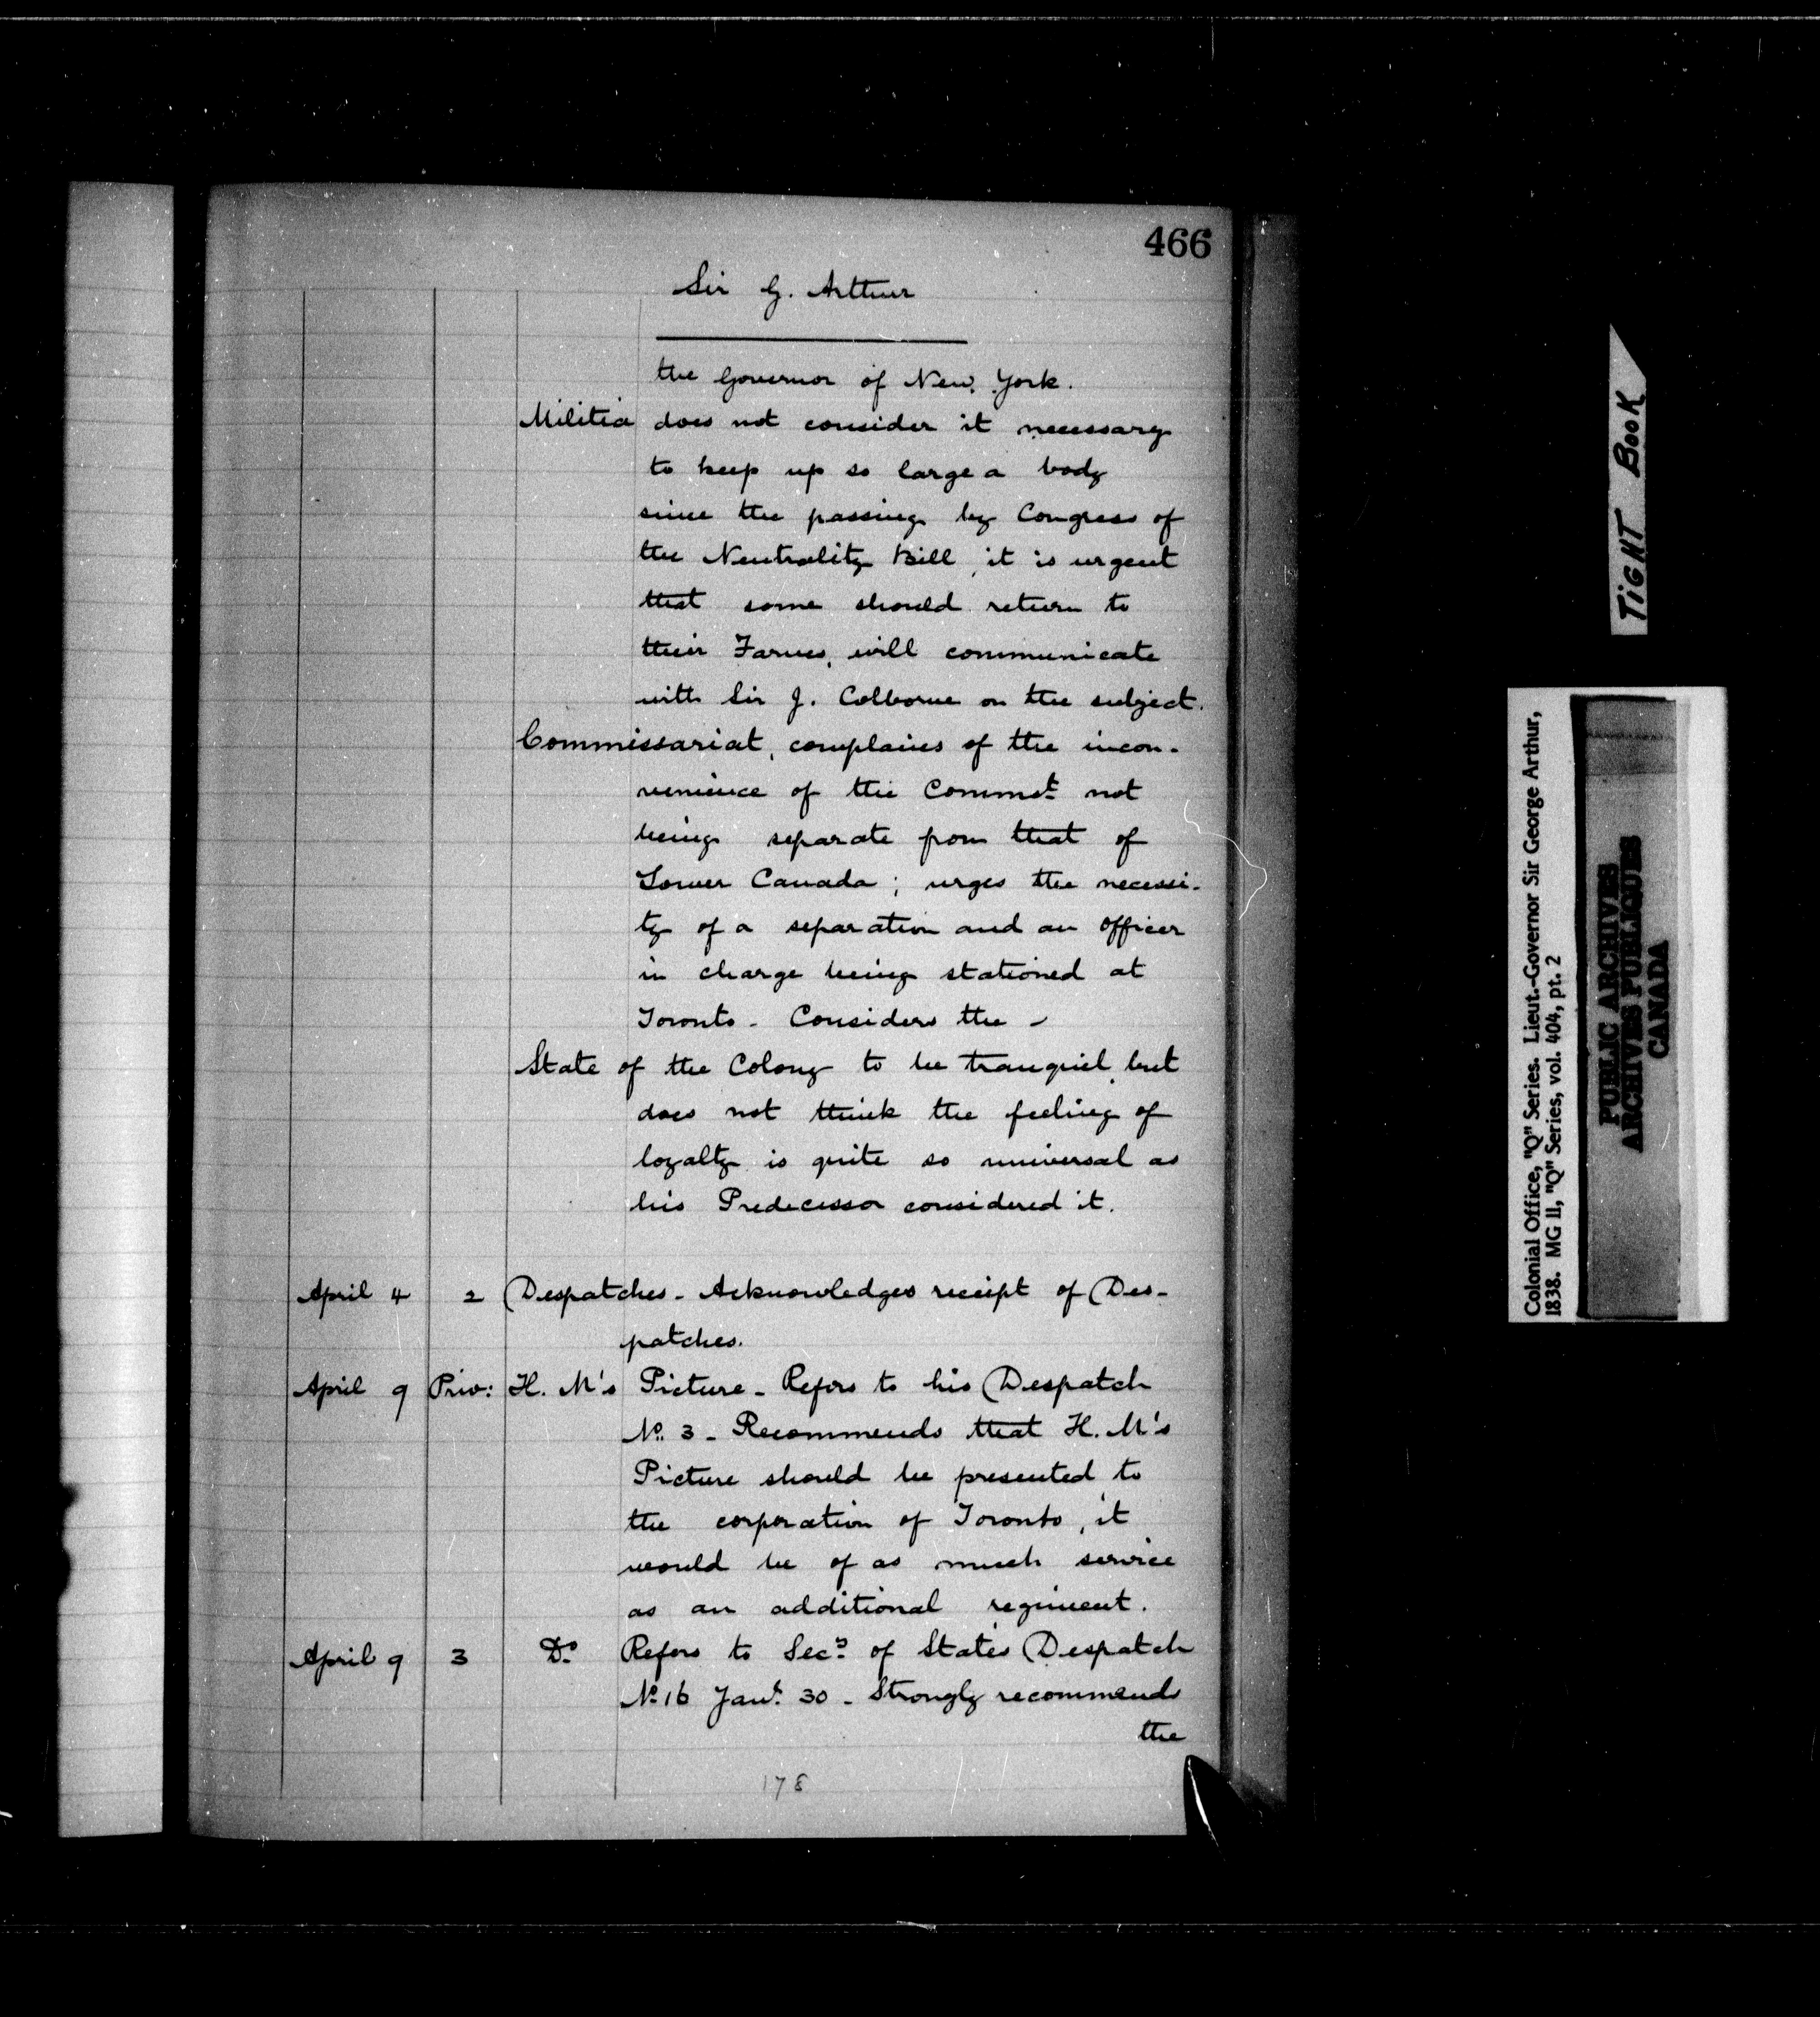 466
Sir G. Arthur
the Governor of New York.
Militia does not consider it necessary
to keep up so large a body
since the passing by Congress of
the Neutrality Bill, it is urgent
that some should return to
their Farms, will communicate
with Sir J. Colborne on the subject.
Commissariat, complains of the incon-
venience of the Commst. not
being separate from that of
Lower Canada; urges the necessi-
ty of a separation and an officer
in charge being stationed at
Toronto - Considers the -
State of the Colony to be tranquil, but
does not think the feeling of
loyalty is quite so universal as
his Predecessor considered it.
April 4 2 Despatches - Acknowledges receipt of Des-
patches.
April 9 Priv: H. M's Picture - Refers to his Despatch
No. 3 - Recommends that H. M's
Picture should be presented to
the corporation of Toronto, it
would be of as much service
as an additional regiment.
April 9 3 Do. Refers to Secy. of State's Despatch
No. 16 Jany. 30 - Strongly recommends
the
178
TIGHT BOOK
Colonial Office, "Q" Series. Lieut.-Governor Sir George Arthur,
1838. MG 11, "Q" Series, vol. 404, pt. 2
PUBLIC ARCHIVES
ARCHIVES PUBLIQUES
CANADA